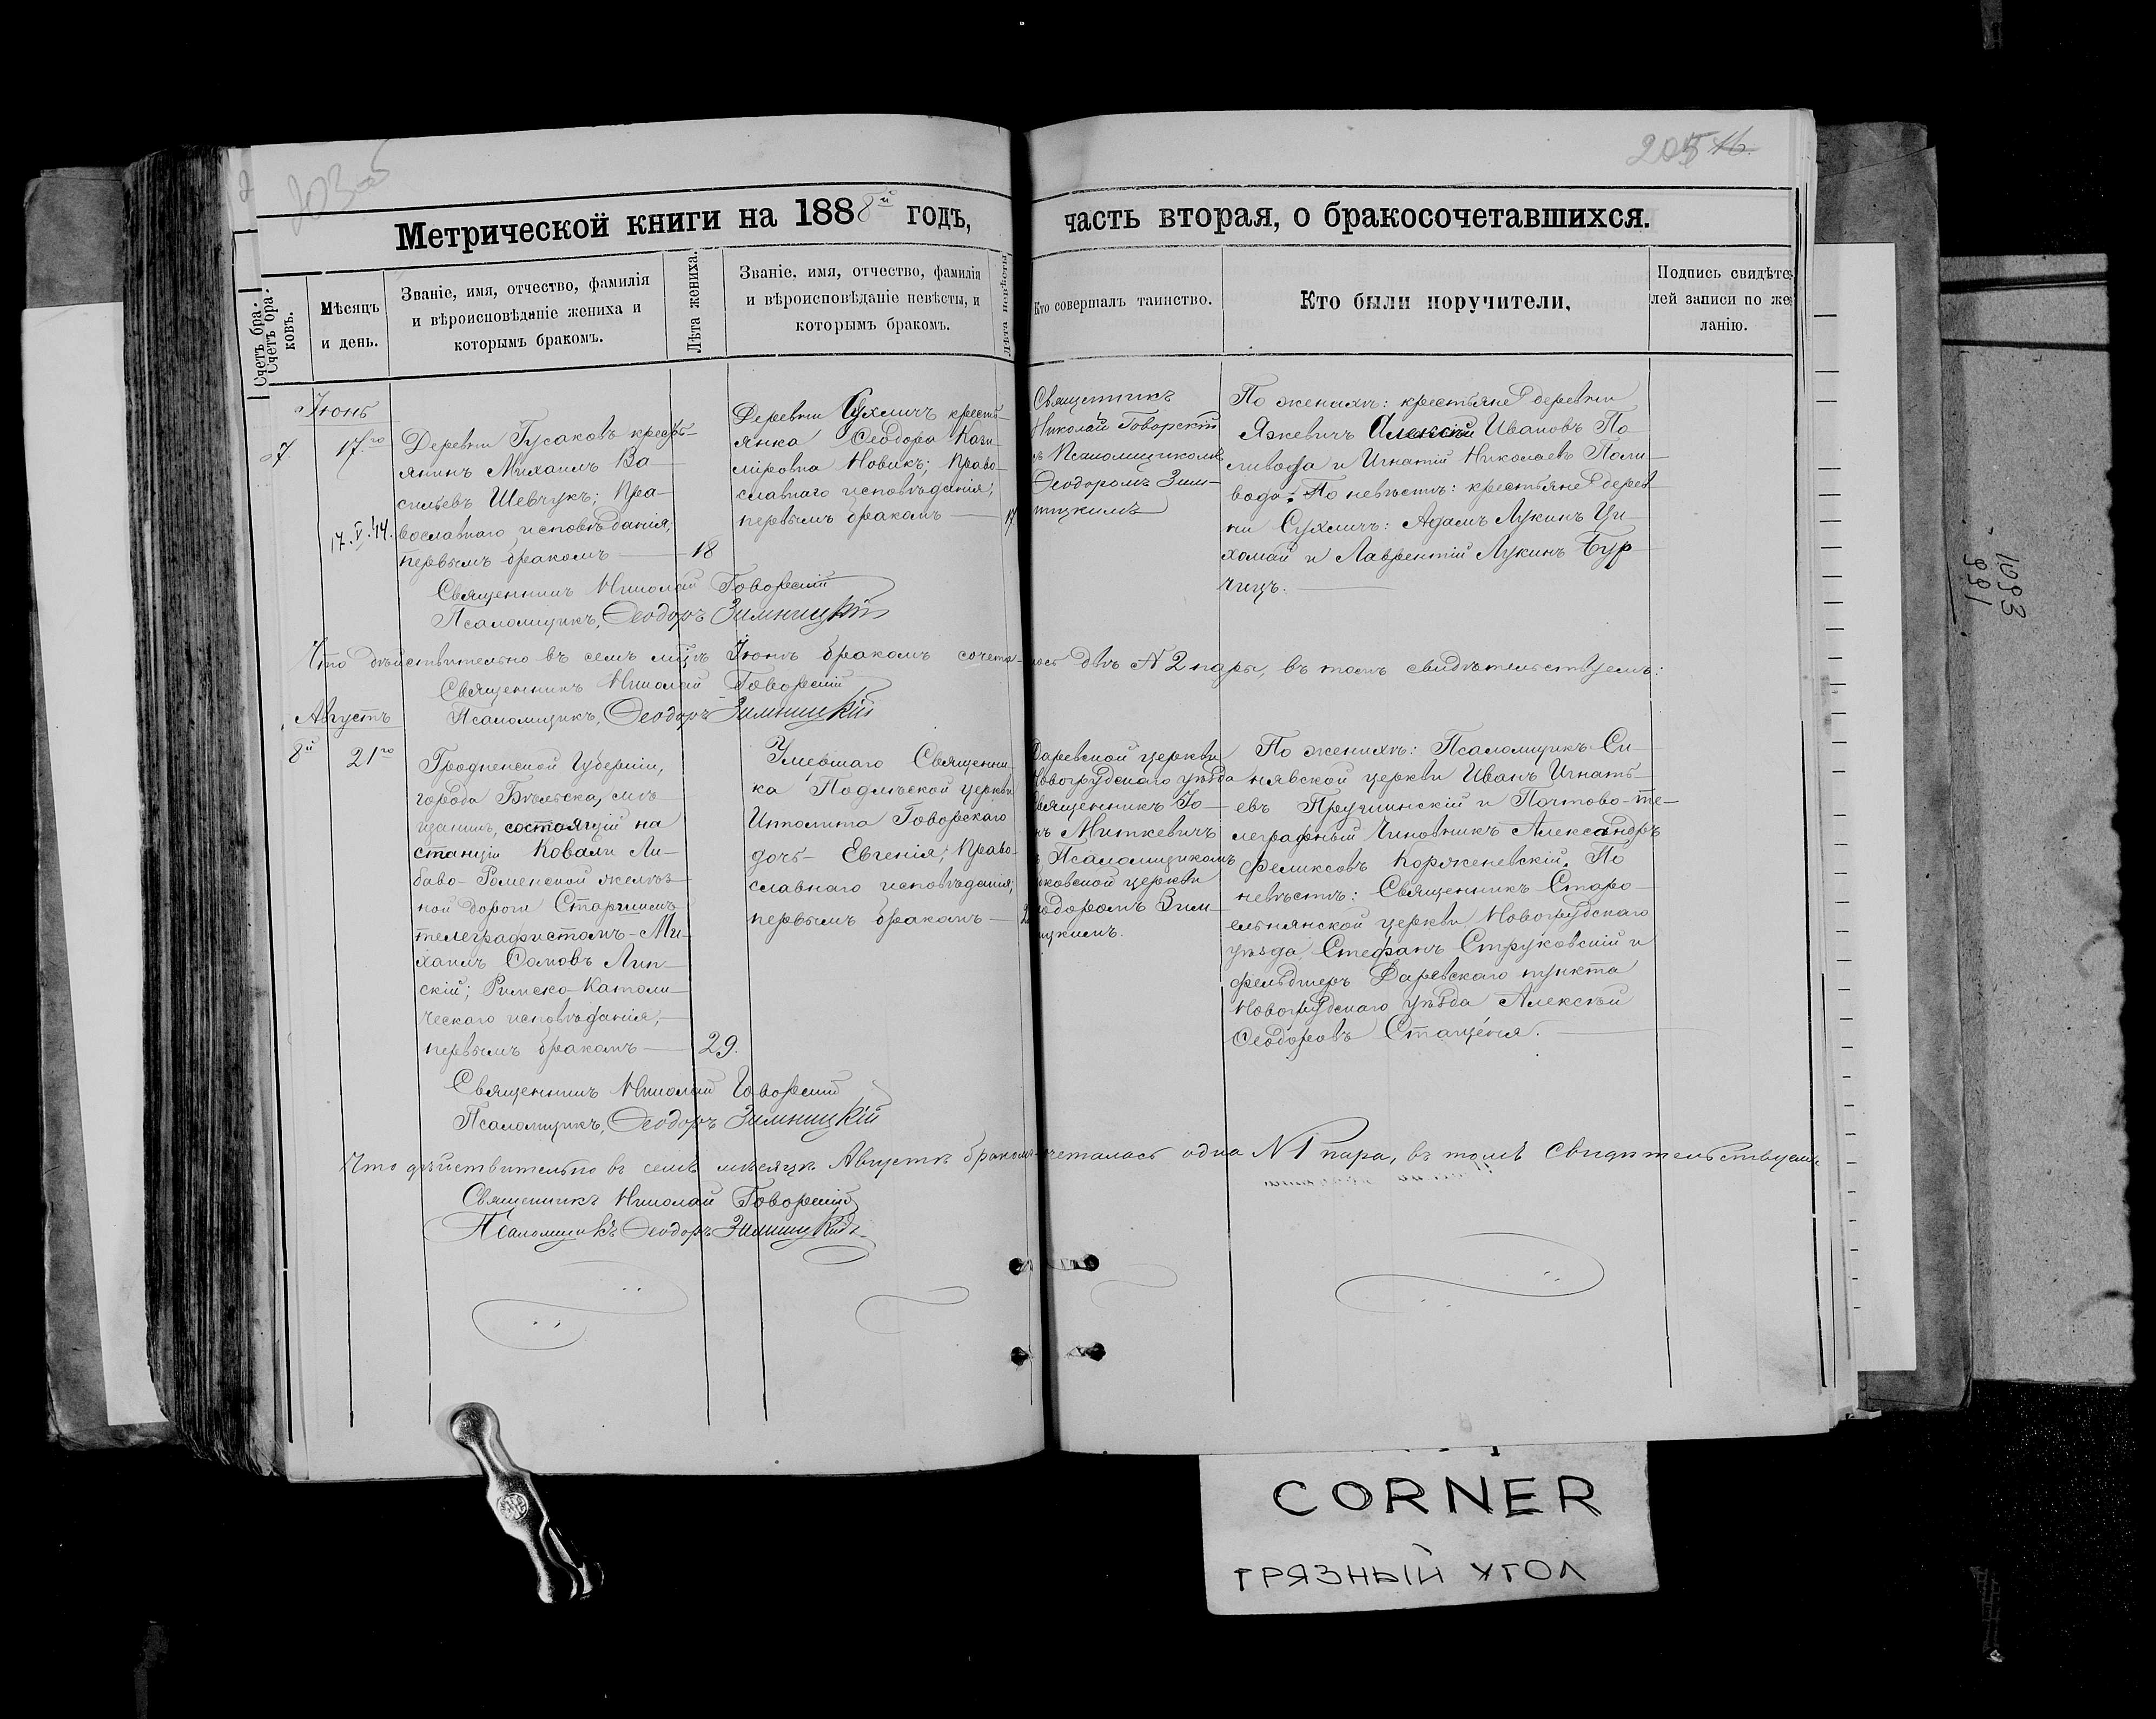 203 об
205 16.
Метрической книги на 1888й годъ, часть вторая, о бракосочетавшихся.
Счетъ бра-
Счетъ бра-
ковъ.
Мѣсяцъ
и день.
Званіе, имя, отчество, фамилія
и вѣроисповѣданіе жениха и
которымъ бракомъ.
Лѣта жениха.
Званіе, имя, отчество, фамилія
и вѣроисповѣданіе невѣсты, и
которымъ бракомъ.
Лѣта невѣсты
Кто совершалъ таинство.
Кто были поручители.
Подпись свидѣте-
лей записи по же
ланію.
Іюнь
7
17го
17.V.14.
Деревни Гусаковъ кресть-
янинъ Михаилъ Ва-
сильевъ Шевчукъ; Пра-
вославнаго исповѣданія,
первымъ бракомъ
18
Деревни Сухличъ кресть-
янка Ѳеодора Кази-
міровна Новикъ; Право-
славнаго исповѣданія,
первымъ бракомъ
17
Священникъ
Николай Говорскій
съ Псаломщикомъ
Ѳеодоромъ Зим-
ницкимъ
По женихѣ: крестьяне деревни
Язкевичъ Алексѣй Ивановъ По
ливода и Игнатій Николаевъ Поли-
вода; По невѣстѣ: крестьяне дерев-
ни Сухличъ: Адамъ Лукинъ Ци-
хомай и Лаврентій Лукинъ Бур-
чицъ.
Священникъ Николай Говорскій
Псаломщикъ, Ѳеодоръ Зимницкій
Что дѣйствительно въ семъ мцѣ Іюнѣ бракомъ сочета-лось двѣ N 2 пары, въ томъ свидѣтельствуемъ:
Священникъ Николай Говорскій
Псаломщикъ, Ѳеодоръ Зимницкій
Августъ
8й
21го
Гродненской Губерніи,
города Бѣльска, мѣ-
щанинъ, состоящій на
станціи Ковали Ли-
баво-Роменской желѣз-
ной дороги Старшимъ
телеграфистомъ - Ми-
хаилъ Осиповъ Лип-
скій; Римско-Католи-
ческаго исповѣданія,
первымъ бракомъ
29.
Умершаго Священни-
ка Подлѣской церкви
Ипполита Говорскаго
дочь - Евгенія; Право-
славнаго исповѣданія,
первымъ бракомъ
2
Даревской церкви
Новогрудскаго уѣзда
Священникъ Іо-
нъ Миткевичъ
съ Псаломщикомъ
ковской церкви
Ѳеодоромъ Зим-
ницкимъ.
По женихѣ: Псаломщикъ Си-
нявской церкви Иванъ Игнать-
евъ Пруглинскій и Почтово-те-
леграфный Чиновникъ Александръ
Феликсовъ Корженевскій. По
невѣстѣ: Священникъ Старо-
ельнянской церкви Новогрудскаго
уѣзда Стефанъ Струковскій и
фельдшеръ Даревскаго пункта
Новогрудскаго уѣзда Алексѣй
Ѳеодоровъ Стащеня.
Священникъ Николай Говорскій
Псаломщикъ, Ѳеодоръ Зимницкій
Что дѣйствительно въ семъ мѣсяцѣ Августѣ бракомъ четалась одна N 1 пара, въ томъ свидѣтельствуемъ
Священникъ Николай Говорскій
Псаломщикъ Ѳеодоръ Зимницкій
1093
991
CORNER
ГРЯЗНЫЙ УГОЛ